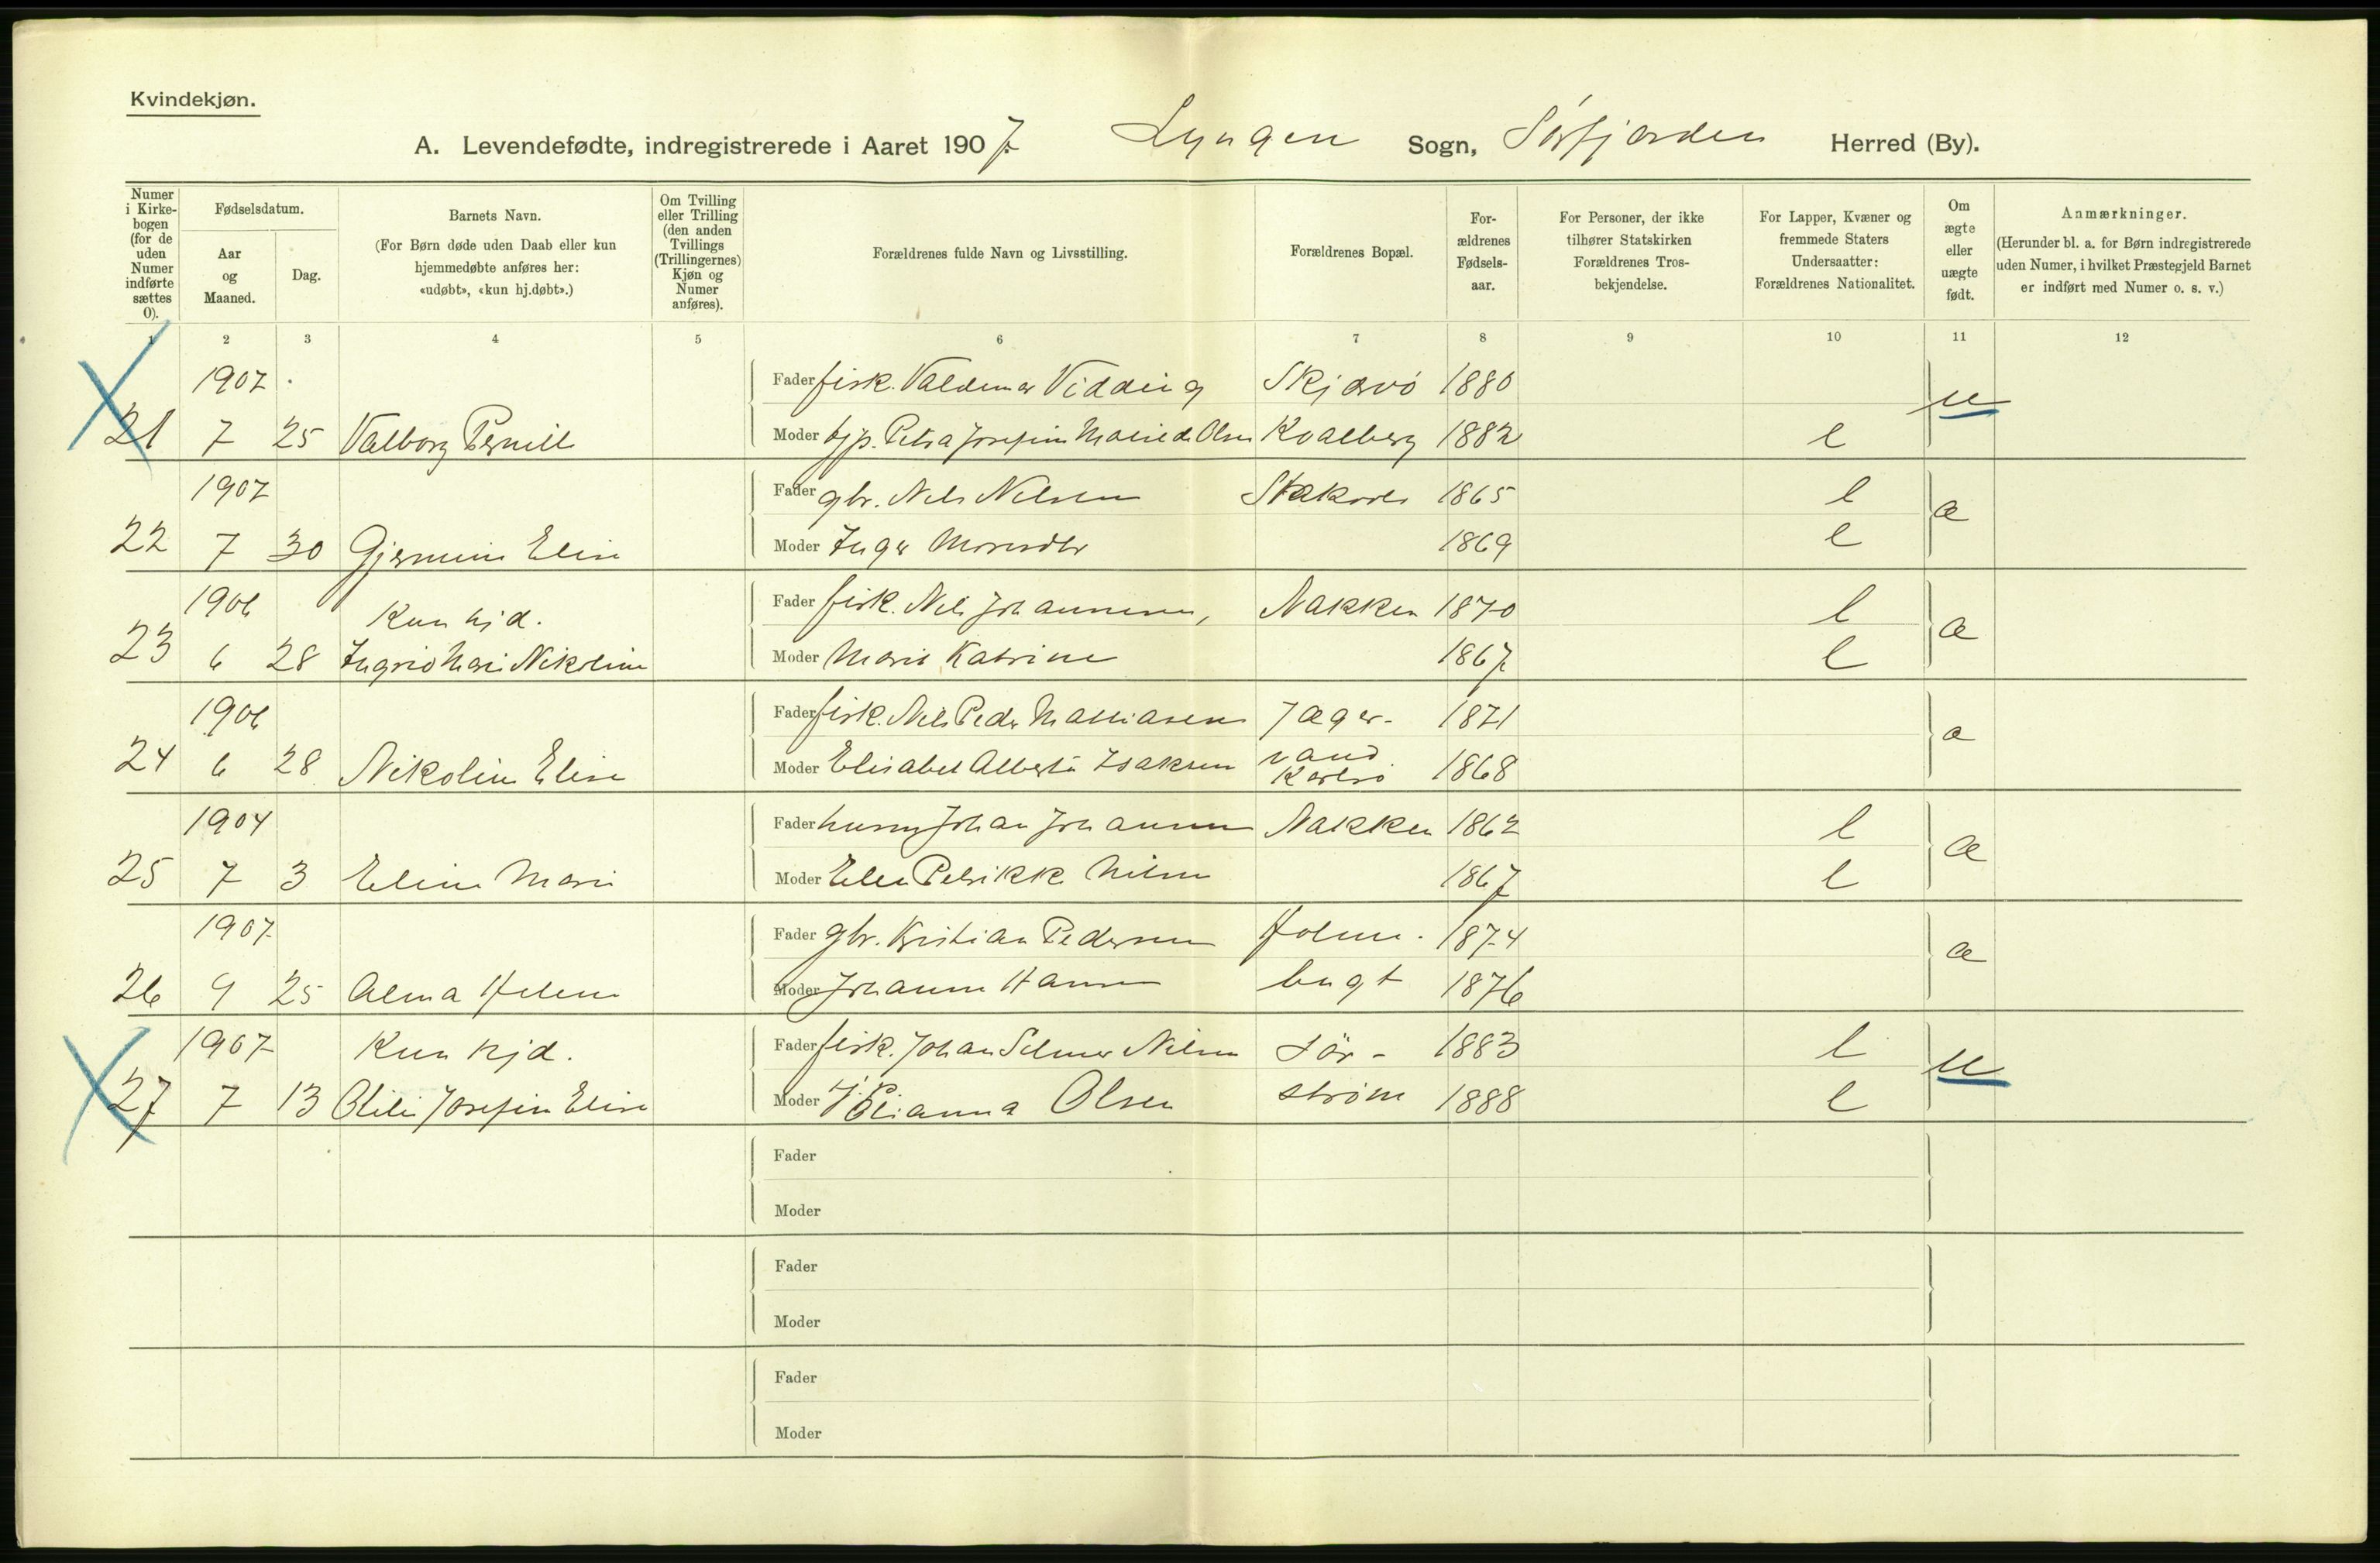 Kvindekjøn.
A. Levendefødte, indregistrerede i Aaret 1907. Lyngen Sogn, Sørfjorden Herred (By).
Numer i Kirkebogen (for de uden Numer indførte sættes 0).
Fødselsdatum.
Aar og Maaned.
Dag.
Barnets Navn.
(For Børn døde uden Daab eller kun hjemmedøbte anføres her: «udøbt», «kun hj.døbt».)
Om Tvilling eller Trilling (den anden Tvillings (Trillingernes) Kjøn og Numer anføres).
Forældrenes fulde Navn og Livsstilling.
Forældrenes Bopæl.
Forældrenes Fødselsaar.
For Personer, der ikke tilhører Statskirken Forældrenes Trosbekjendelse.
For Lapper, Kvæner og fremmede Staters Undersaatter: Forældrenes Nationalitet.
Om ægte eller uægte født.
Anmærkninger.
(Herunder bl. a. for Børn indregistrerede uden Numer, i hvilket Præstegjeld Barnet er indført med Numer o. s. v.)
1 2 3 4 5 6 7 8 9 10 11 12
1907 Fader fisk. Valdemar Vidding Skjærvö 1880 u
21 7 25 Valborg Pernill Moder Petra Josefin Olsen Kvalberg 1882 l
1907 Fader gbr. Nils Nilsen 1865 l æ
22 7 30 Elise Moder Inger 1869 l
1906 Kun hjd. Fader fisk. Nils Johannesen, Nakken 1870 l æ
23 6 28 Mari Nikoline Moder Marit Katrine 1867 l
1906 Fader fisk. Nils Peder Mathiasen Jæger- 1871 æ
24 6 28 Nikoline Elise Moder Elisabet Isaksen vand Karlsö 1868
1904 Fader Johan Johannesen Nakken 1862 l æ
25 7 3 Eline Marie Moder Ellen Petrikke Nilsen 1867 l
1907 Fader gbr. Kristian Pedersen Holm- 1874 æ
26 9 25 Alma Helene Moder Johanne Hansen bugt 1876
1907 Kun hjd. Fader fisk. Johan Selmer Nilsen Sör- 1883 l u
27 7 13 Josefin Elise Moder Olsen ström 1888 l
Fader
Moder
Fader
Moder
Fader
Moder